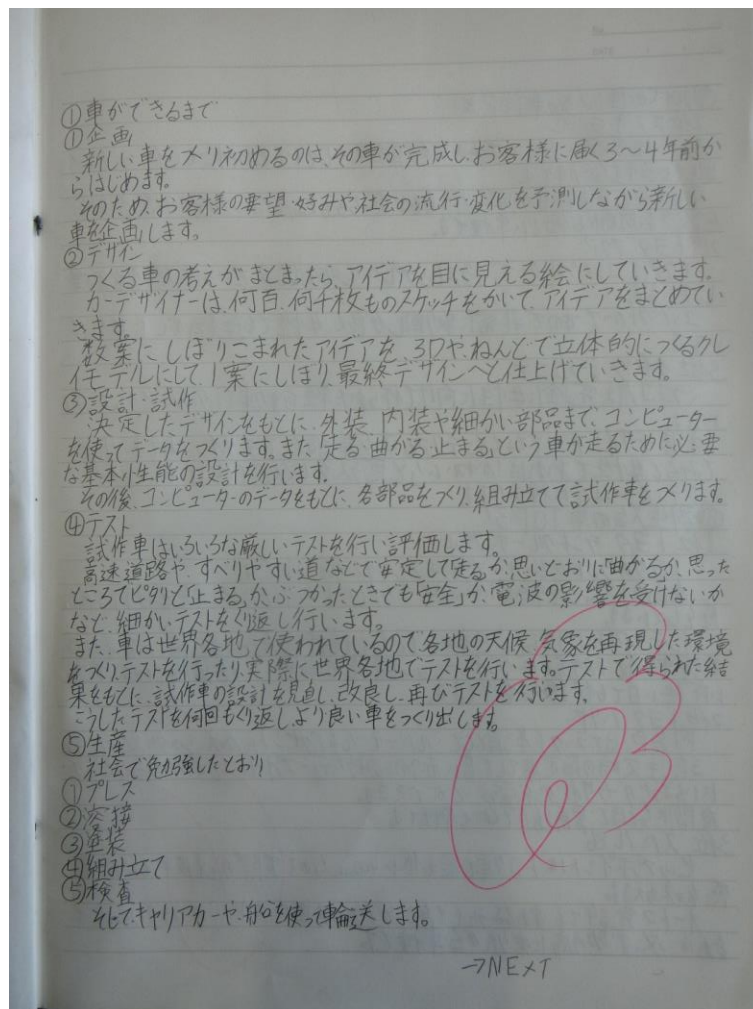 ①車ができるまで
①企画
新しい車をつくり初めるのは、その車が完成し、お客様に届く3〜4年前か
らはじめます。
そのため、お客様の要望・好みや、社会の流行・変化を予測しながら新しい
車を企画します。
②デザイン
つくる車の考えがまとまったら、アイデアを目に見える絵にしていきます。
カーデザイナーは、何百、何千枚ものスケッチをかいて、アイデアをまとめてい
きます。
数案にしぼりこまれたアイデアを、3Dや、ねんどで立体的につくるクレ
イモデルにして、1案にしぼり、最終デザインへと仕上げていきます。
③設計・試作
決定したデザインをもとに、外装、内装や細かい部品まで、コンピューター
を使ってデータをつくります。また「走る・曲がる・止まる」という車が走るために必要
な基本性能の設計を行います。
その後、コンピューターのデータをもとに、各部品をつくり、組み立てて試作車をつくります。
④テスト
試作車はいろいろな厳しいテストを行い評価します。
高速道路や、すべりやすい道などで安定して「走る」か、思いどおりに「曲がる」か、思った
ところでピタリと「止まる」か、ぶつかったときでも「安全」か、電波の影響を受けないか
など、細かいテストをくり返し行います。
また、車は世界各地で使われているので、各地の天候、気象を再現した環境
をつくり、テストを行ったり、実際に世界各地でテストを行います。テストで得られた結
果をもとに、試作車の設計を見直し、改良し、再びテストを行います。
こうしたテストを何回もくり返し、より良い車をつくり出します。
⑤生産
社会で勉強したとおり
①プレス
②溶接
③塗装
④組み立て
⑤検査
そして、キャリアカーや、船を使って輸送します。
→NEXT